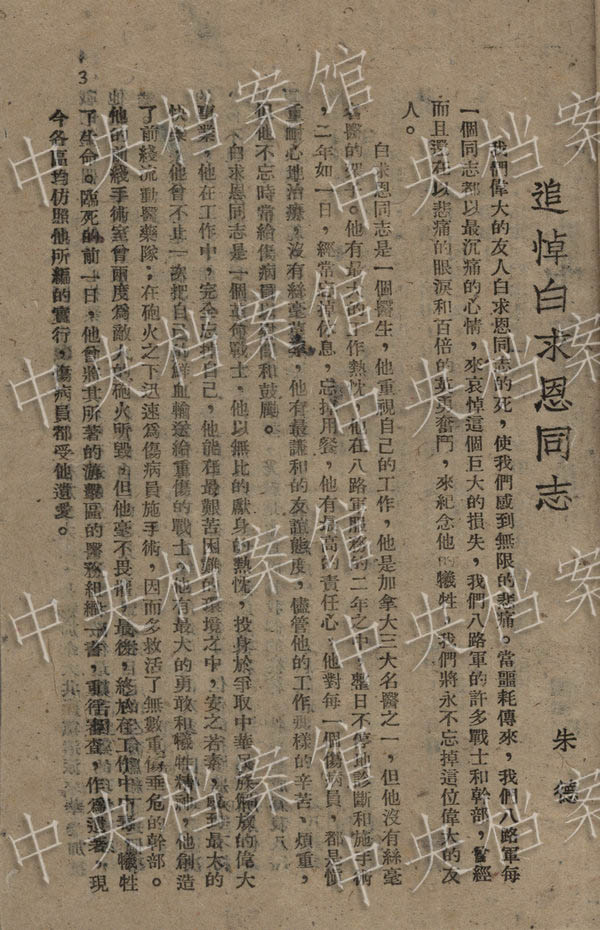 追悼白求恩同志
朱德
我們偉大的友人白求恩同志的死，使我們感到無限的悲痛。當噩耗傳來，我們八路軍每
一個同志都以最沉痛的心情，來哀悼這個巨大的損失，我們八路軍的許多戰士和幹部，曾經
而且還在以悲痛的眼淚和百倍的英勇奮鬥，來紀念他的犧牲，我們將永不忘掉這位偉大的友
人。
白求恩同志是一個醫生，他重視自己的工作，他是加拿大三大名醫之一，但他沒有絲毫
名醫的架子。他有最大的工作熱忱，他在八路軍服務的二年之中，整日不停地診斷和施手術
，二年如一日，經常忘掉休息，忘掉用餐，他有最高的責任心，他對每一個傷病員，都是慎
重耐心地治療，沒有絲毫苟，他有最謙和的友誼態度，儘管他的工作那樣的辛苦，煩重，
但他不忘時常給傷病員以安慰和鼓勵。
白求恩同志是一個真正的戰士，他以無比的獻身的熱忱，投身於爭取中華民族解放的偉大
事業，他在工作中，完全忘掉自己，他能在最艱苦困難的環境之中，安之若素，感到最大的
快樂，他曾不止一次把自己的鮮血輸送給重傷的戰士。他有最大的勇敢和犧牲精神，他創造
了前綫流動醫藥隊，在砲火之下迅速爲傷病員施手術，因而多救活了無數重傷垂危的幹部。
他的火綫手術室曾兩度爲敵人的砲火所毀，但他毫不畏懼，最後，終於在工作中中毒，犧牲
了生命。臨死的前一日，他曾將其所著的游擊區的醫務組織一書，重行審查，作爲遺著，現
今各區均仿照他所編的實行，傷病員都受他遺愛。
3
中央档案馆
中央档案馆
中央档案馆
中央档案馆
中央档案馆
中央档案馆
中央档案馆
中央档案馆